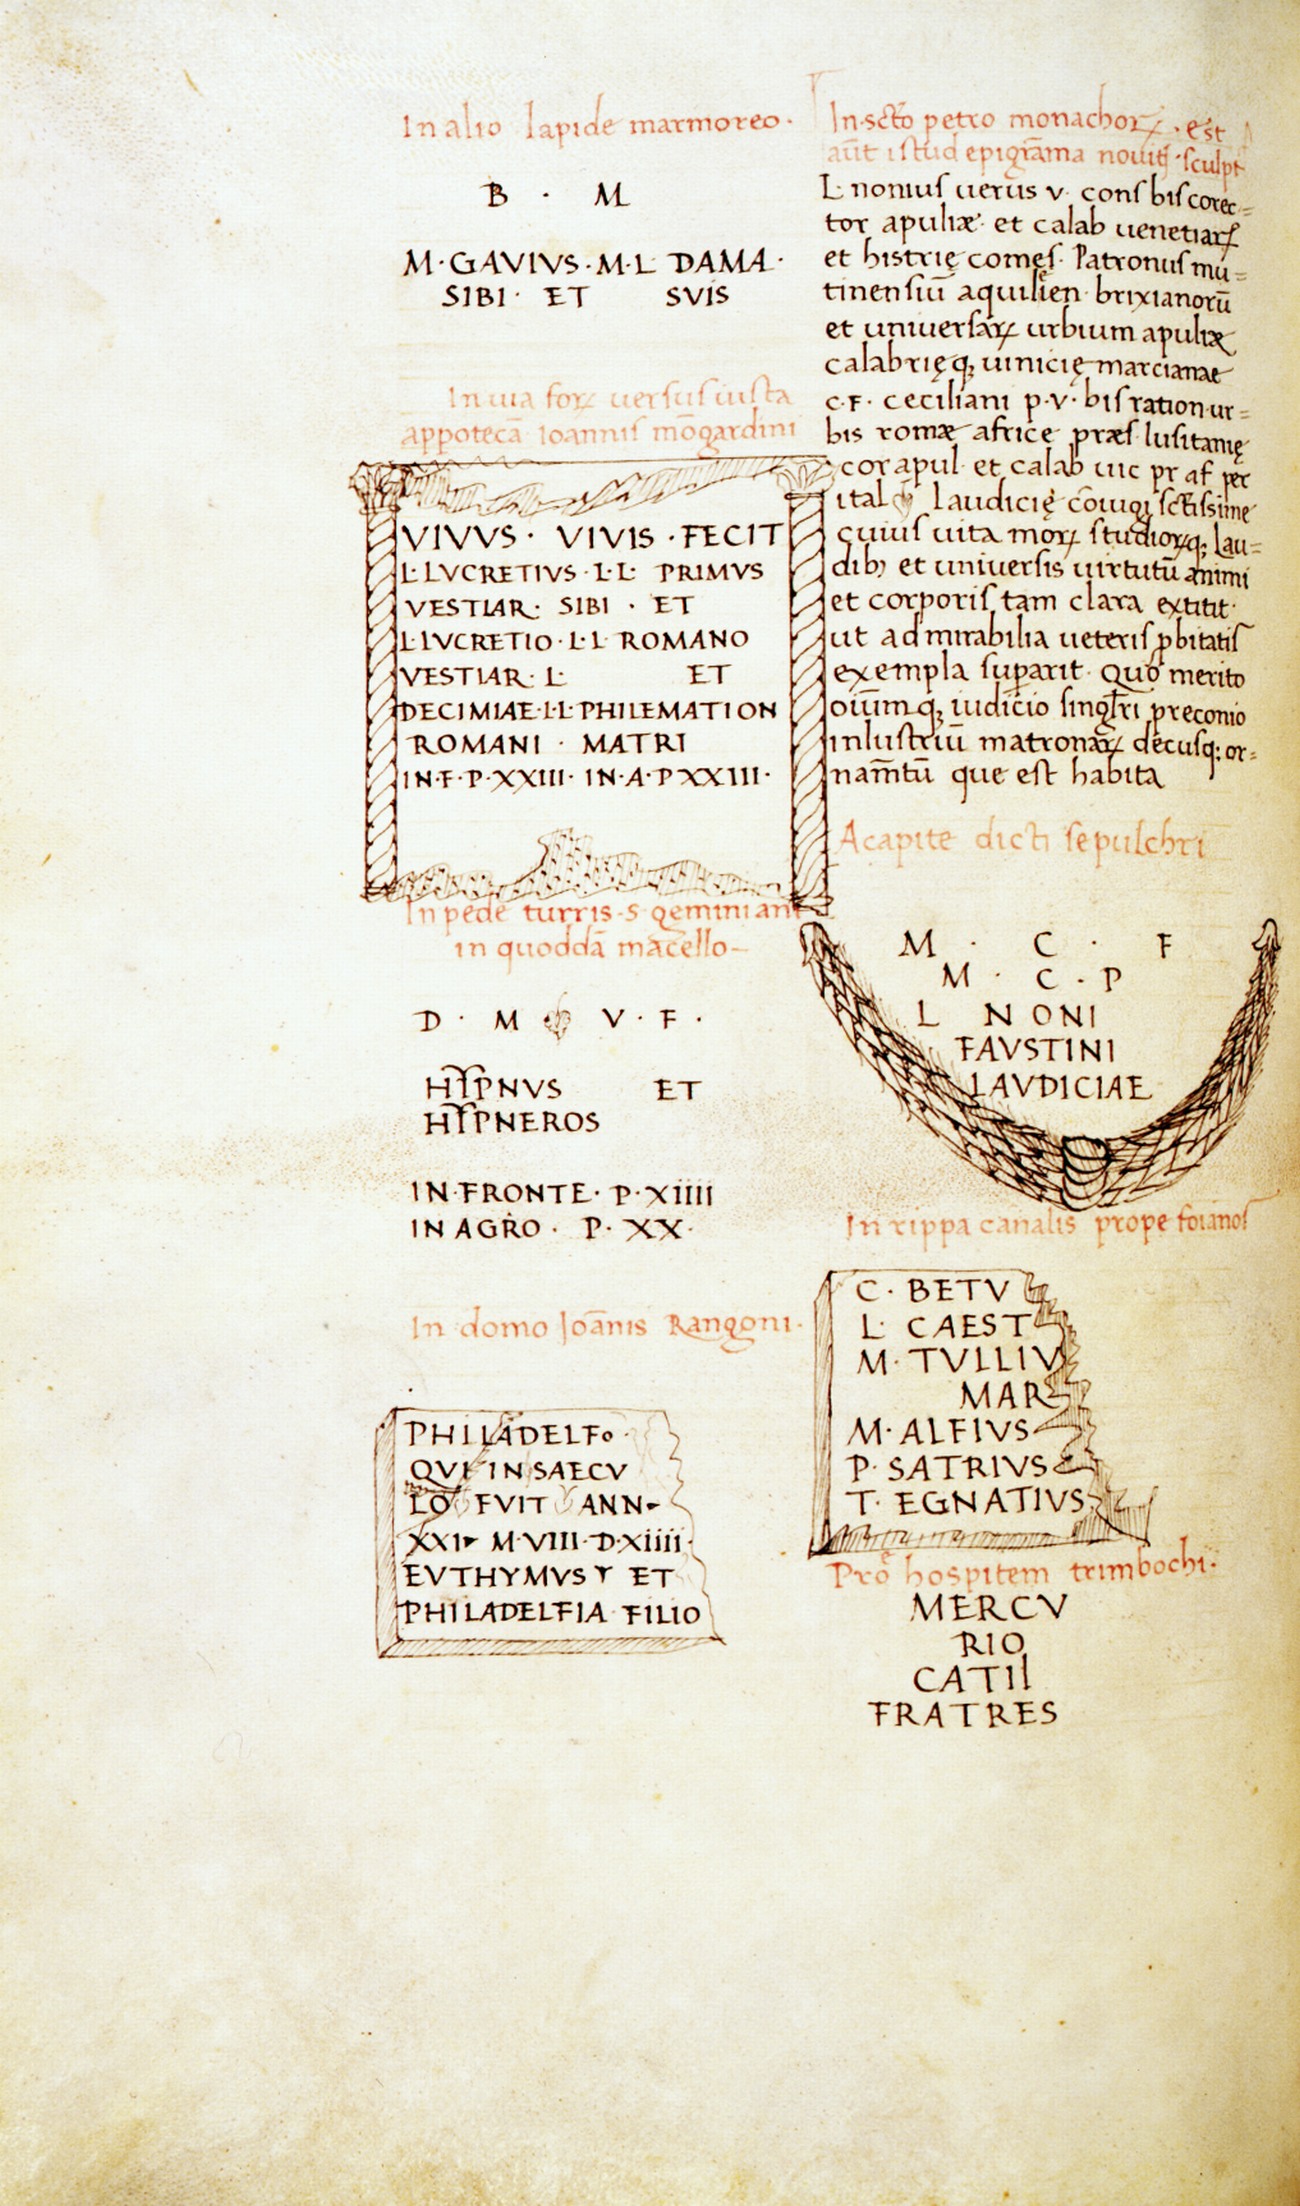 In alio lapide marmoreo·
B · M
M·GAVIVS·M·L DAMA·
SIBI· ET SVIS
In uia forꝝ uersus iusta
appotecā ioannis mōgardini
VIVVS· VIVIS·FECIT
L·LVCRETIVS·L·L· PRIMVS
VESTIAR· SIBI · ET
L·LVCRETIO·L·L ROMANO
VESTIAR· L· ET
DECIMIAE·L·L·PHILEMATION
ROMANI · MATRI
IN·F·P·XXIII· IN·A·P XXIII·
In pede turris·s·geminiani
in quoddā macello–
D · M V · F ·
HYPNVS ET
HYPNEROS
IN·FRONTE· P·XIIII
IN AGRO· P· XX·
In domo Joānis Rangoni·
PHILADELFo·
QVI IN SAECV
LO FVIT ANN
XXI M·VIII·D·XIIII·
EVTHYMVS ET
PHILADELFIA FILIO
In·scto petro monachoꝝ·est
aūt istud epigrāma nouitꝭ·sculpt
L·nonius uerus v· cons bis corec=
tor apuliæ· et calab uenetiarꝝ
et histrię comes· Patronus mu=
tinensiū aquileien· brixianorū
et uniuersarꝝ urbium apuliæ
calabrięqꝫ uinicię marcianae
c·F· ceciliani p·v· bis ration·ur=
bis romæ africe præs lusitanię
cor apul· et calab uic pr af per
ital laudicię cōiugi sctissime
cuius uita morꝝ studiorꝝqꝫ lau=
dibꝫ et uniuersis uirtutū animi
et corporis tam clara extitit·
ut admirabilia ueteris ꝓbitatis
exempla suꝑarit· Quo merito
oiūmqꝫ iudicio singlri preconio
inlustriū matronarꝝ decusqꝫ or=
namtū que est habita
A capite dicti sepulchri
M · C · F
M · C · P
L NONI
FAVSTINI
LAVDICIAE
In rippa canalis prope foianos
C· BETV
L· CAEST
M· TVLLIV
MAR
M·ALFIVS
P·SATRIVS
T· EGNATIVS
Proe hospitem trimbochi·
MERCV
RIO
CATIL
FRATRES